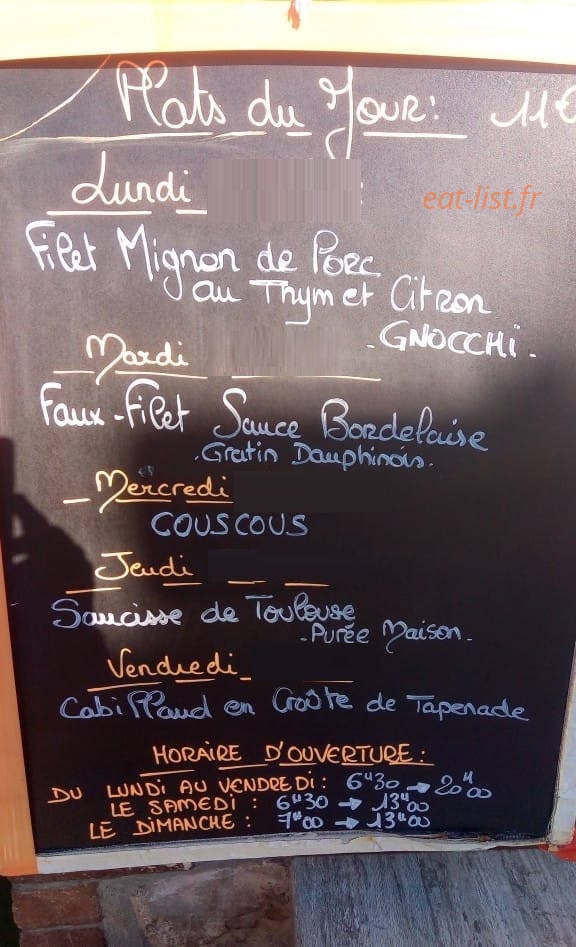 Plats du Jour: 11€
Lundi :
eat-list.fr
Filet Mignon de Porc
au Thym et Citron
- GNOCCHI.
Mardi
Faux-Filet Sauce Bordelaise
. Gratin Dauphinois.
Mercredi
COUSCOUS
Jeudi
Saucisse de Toulouse
- Purée Maison.
Vendredi
Cabillaud en Croûte de Tapenade
HORAIRE D'OUVERTURE:
DU LUNDI AU VENDREDI: 6H30 → 20H00
LE SAMEDI: 6H30 → 13H00
LE DIMANCHE: 7H00 → 13H00